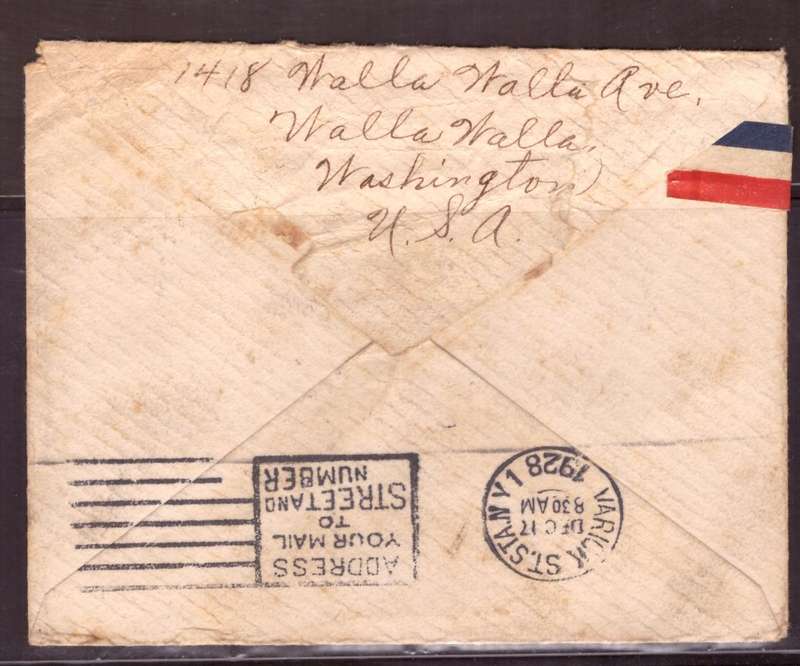 1418 Walla Walla Ave.
Walla Walla,
Washington
U. S. A.
ADDRESS
YOUR MAIL
TO
STREET AND
NUMBER
VARICK ST. STA. N Y 1
DEC 17
8 30 AM
1928